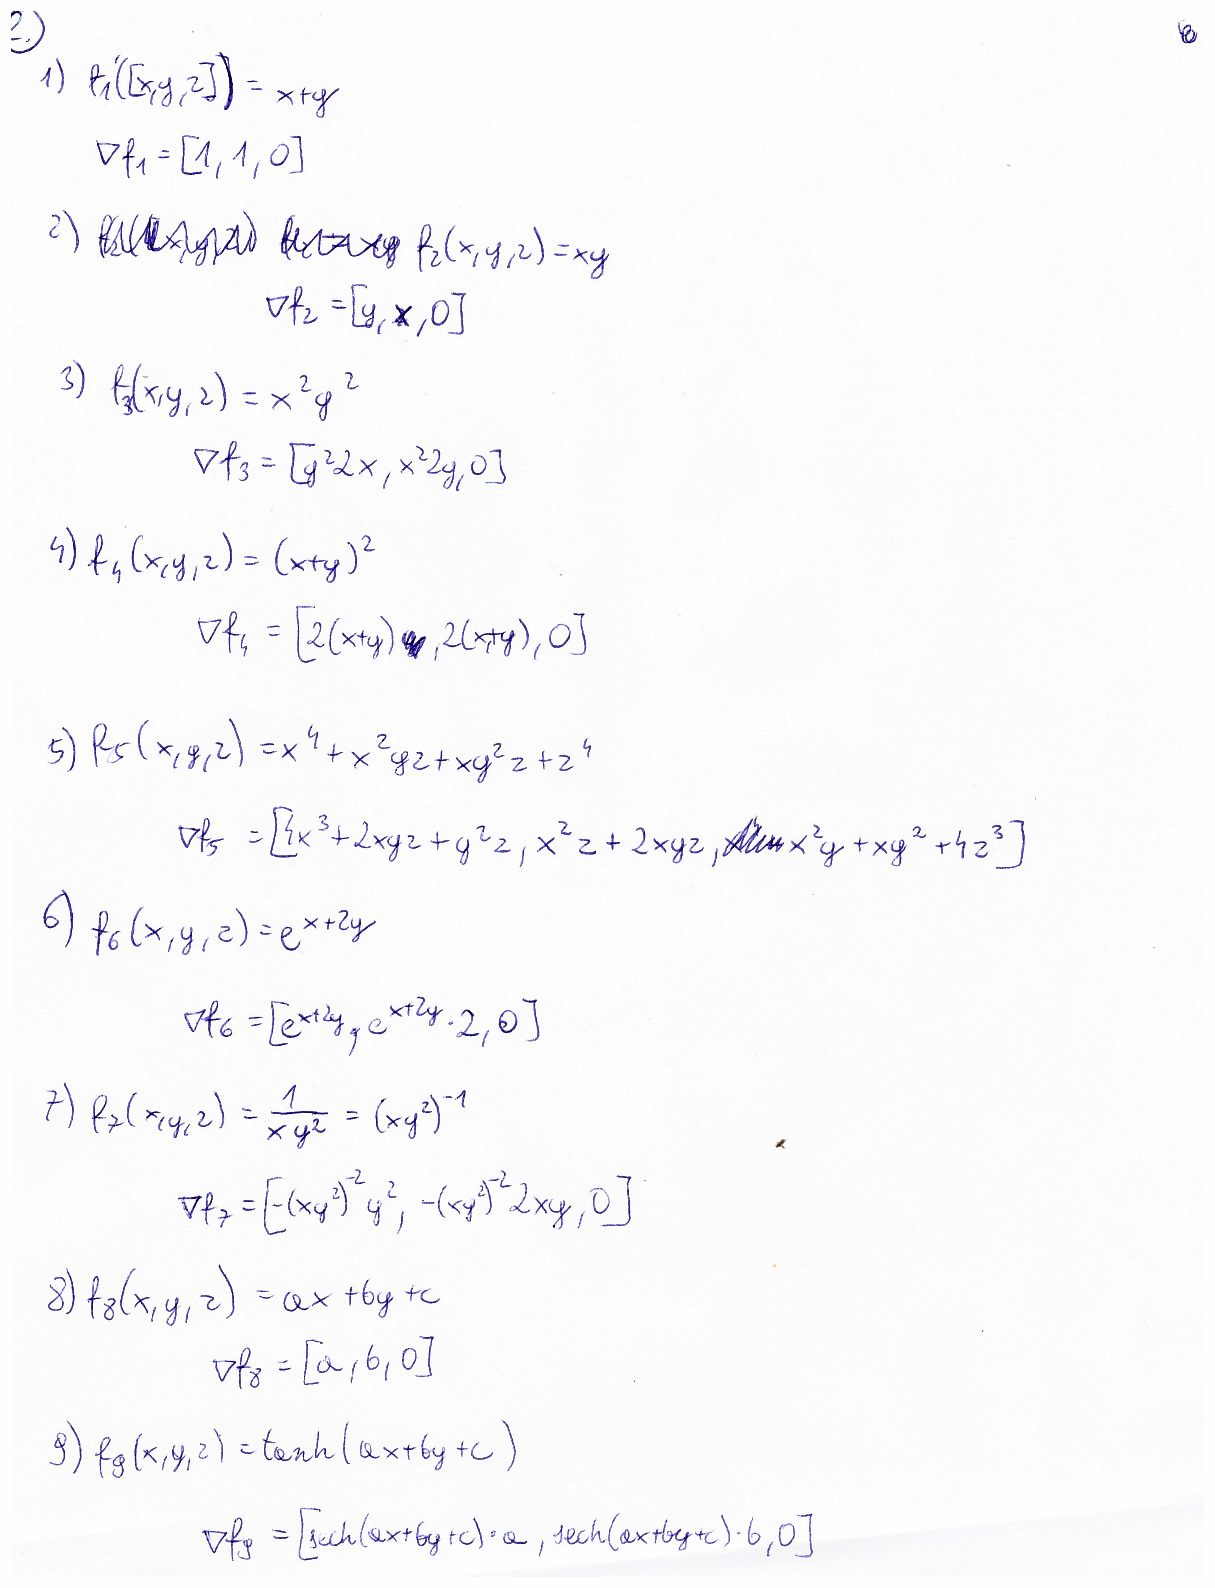 2.)
8
1) f₁([x,y,z]) = x+y
∇f₁ = [1, 1, 0]
2) f₂(x,y,z) = xy
∇f₂ = [y, x, 0]
3) f₃(x,y,z) = x²y²
∇f₃ = [y²2x, x²2y, 0]
4) f₄(x,y,z) = (x+y)²
∇f₄ = [2(x+y), 2(x+y), 0]
5) f₅(x,y,z) = x⁴ + x²yz + xy²z + z⁴
∇f₅ = [4x³ + 2xyz + y²z, x²z + 2xyz, x²y + xy² + 4z³]
6) f₆(x,y,z) = e^{x+2y}
∇f₆ = [e^{x+2y}, e^{x+2y}·2, 0]
7) f₇(x,y,z) = 1/(xy²) = (xy²)⁻¹
∇f₇ = [-(xy²)⁻²y², -(xy²)⁻²2xy, 0]
8) f₈(x,y,z) = ax + by + c
∇f₈ = [a, b, 0]
9) f₉(x,y,z) = tanh(ax+by+c)
∇f₉ = [sech(ax+by+c)·a, sech(ax+by+c)·b, 0]